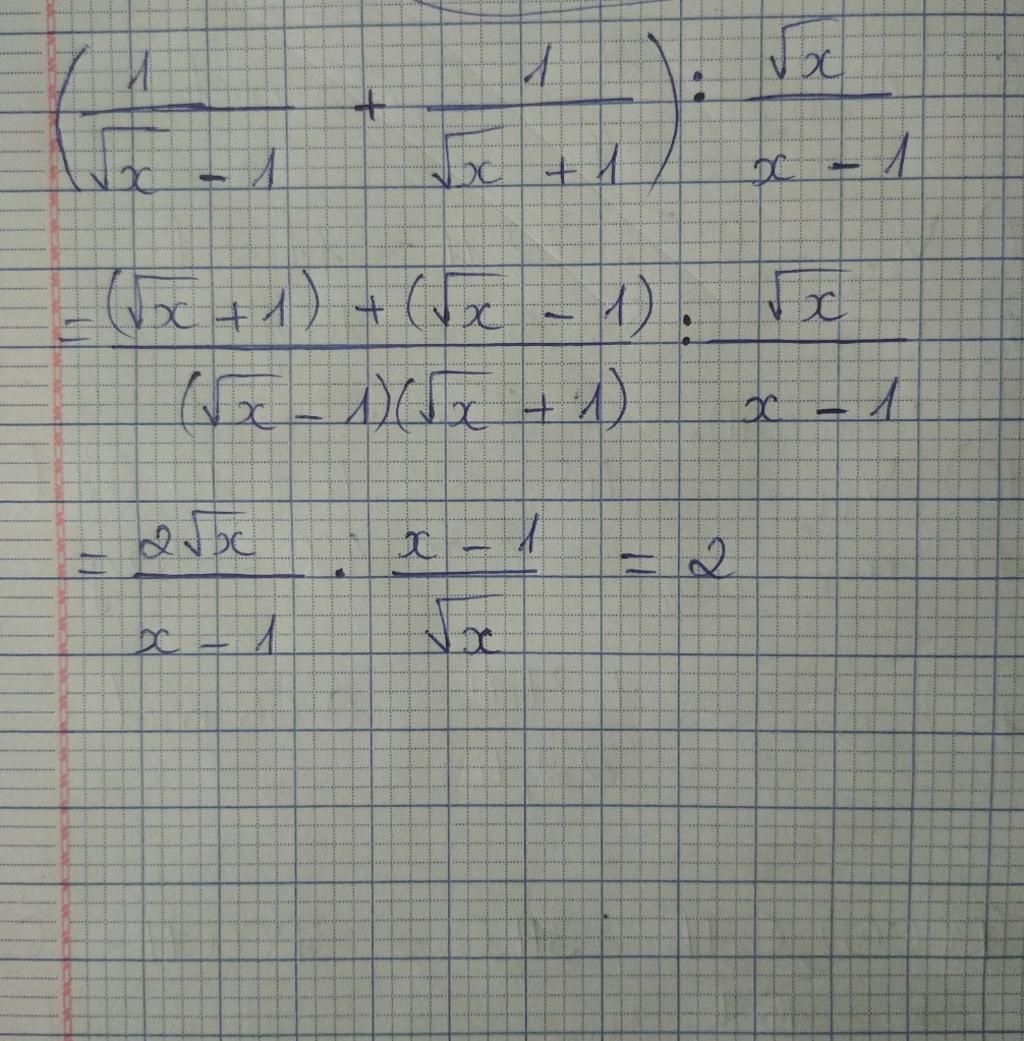 (1/(√x - 1) + 1/(√x + 1)) : √x/(x - 1)
= ((√x + 1) + (√x - 1))/((√x - 1)(√x + 1)) : √x/(x - 1)
= 2√x/(x - 1) . (x - 1)/√x = 2